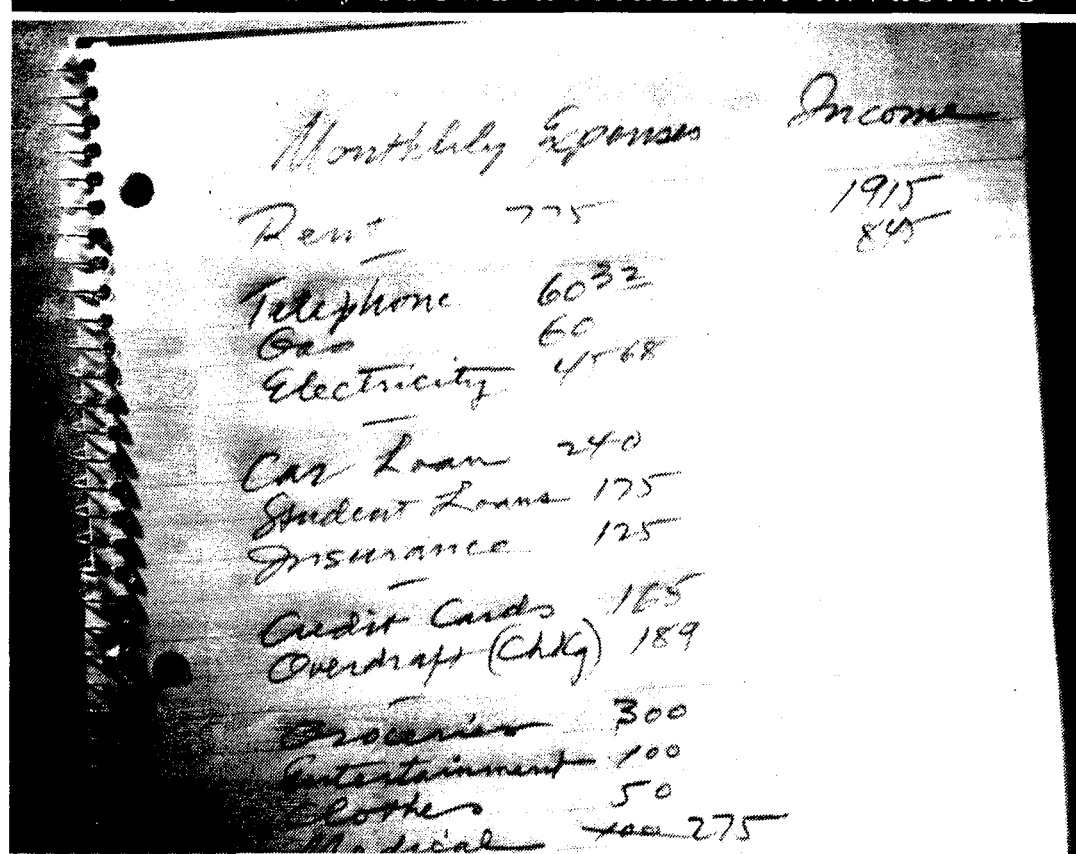 Monthlyly Expenses Income
Rent 775 1915
845
Telephone 60 32
Gas 60
Electricity 45 68
Car Loan 240
Student Loans 175
Insurance 125
Credit Cards 165
Overdraft (Chkg) 189
Groceries 300
Entertainment 100
Clothes 50
Medical 100 275